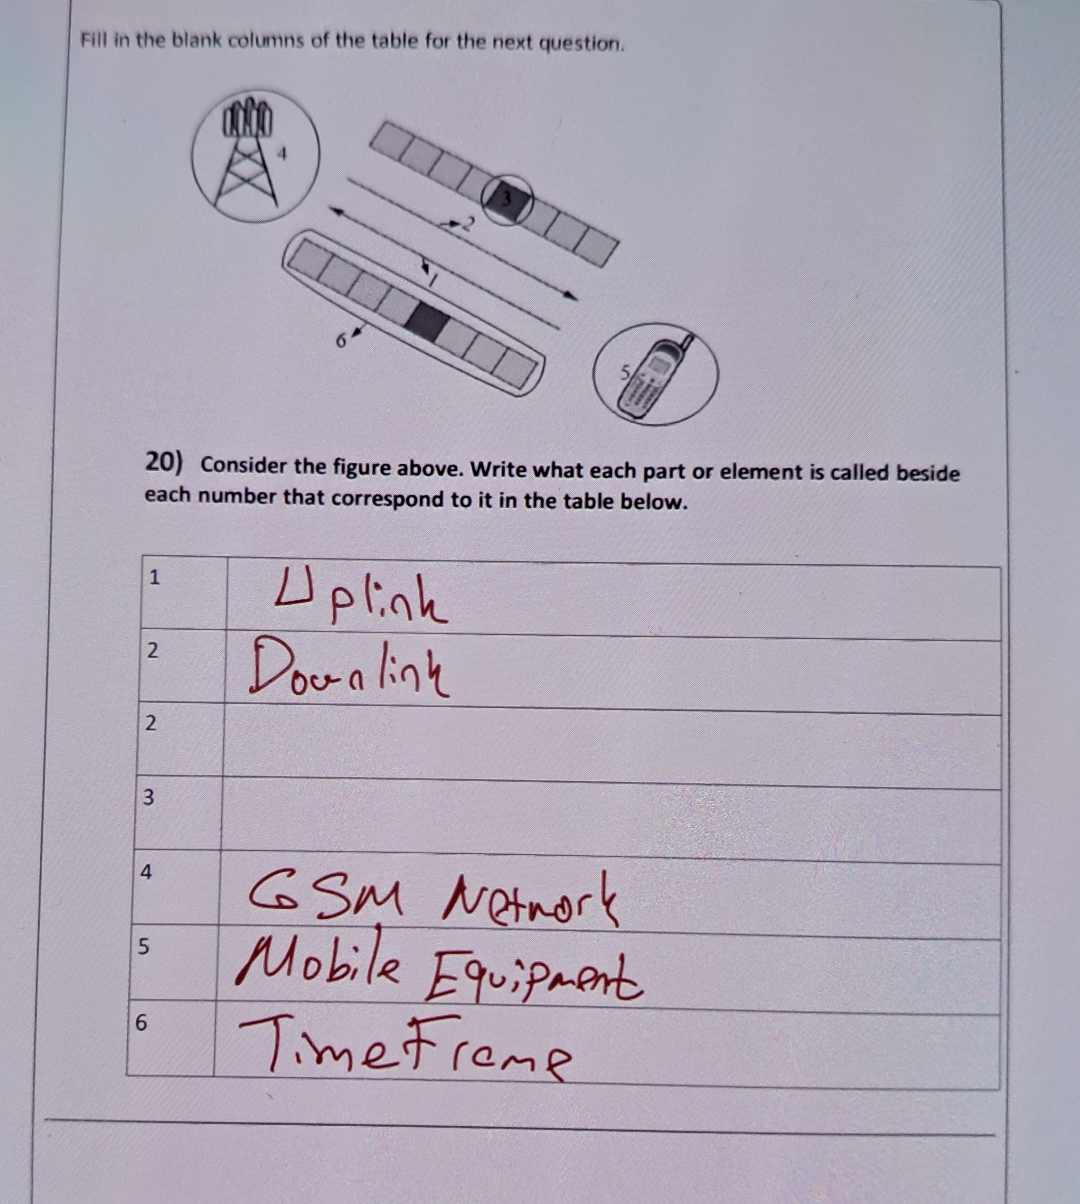 Fill in the blank columns of the table for the next question.
4
3
2
1
6
5
20) Consider the figure above. Write what each part or element is called beside
each number that correspond to it in the table below.
1 Uplink
2 Downlink
2
3
4 GSM Network
5 Mobile Equipment
6 TimeFrame